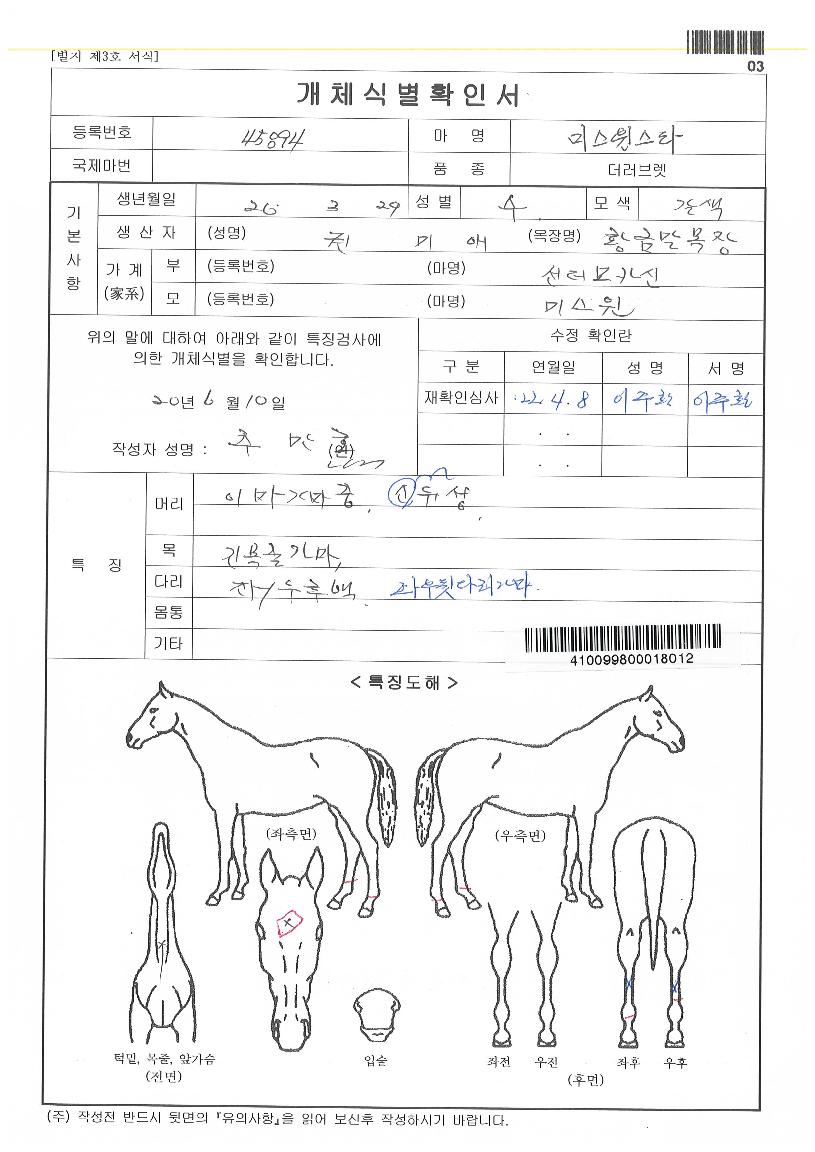 [별지 제3호 서식]
03
개체식별확인서
등록번호 45894 마 명 미스윈스타
국제마번 품 종 더러브렛
기본사항
생년월일 20. 3 29 성 별 수 모 색 갈색
생 산 자 (성명) 미 애 (목장명) 황금말목장
가 계 (家系) 부 (등록번호) (마명)
모 (등록번호) (마명) 미스윈
위의 말에 대하여 아래와 같이 특징검사에
의한 개체식별을 확인합니다.
20년 6월 10일
작성자 성명 : 추
수정 확인란
구 분 연월일 성 명 서 명
재확인심사 22. 4. 8 이주환 이주환
. .
. .
특 징
머리 이마가마중, 유성
목 가마,
다리 좌우후백. 좌우뒷다리가마.
몸통
기타
410099800018012
< 특징도해 >
(좌측면) (우측면)
턱밑, 목줄, 앞가슴 입술 좌전 우진 좌후 우후
(전면) (후면)
(주) 작성전 반드시 뒷면의 『유의사항』을 읽어 보신후 작성하시기 바랍니다.